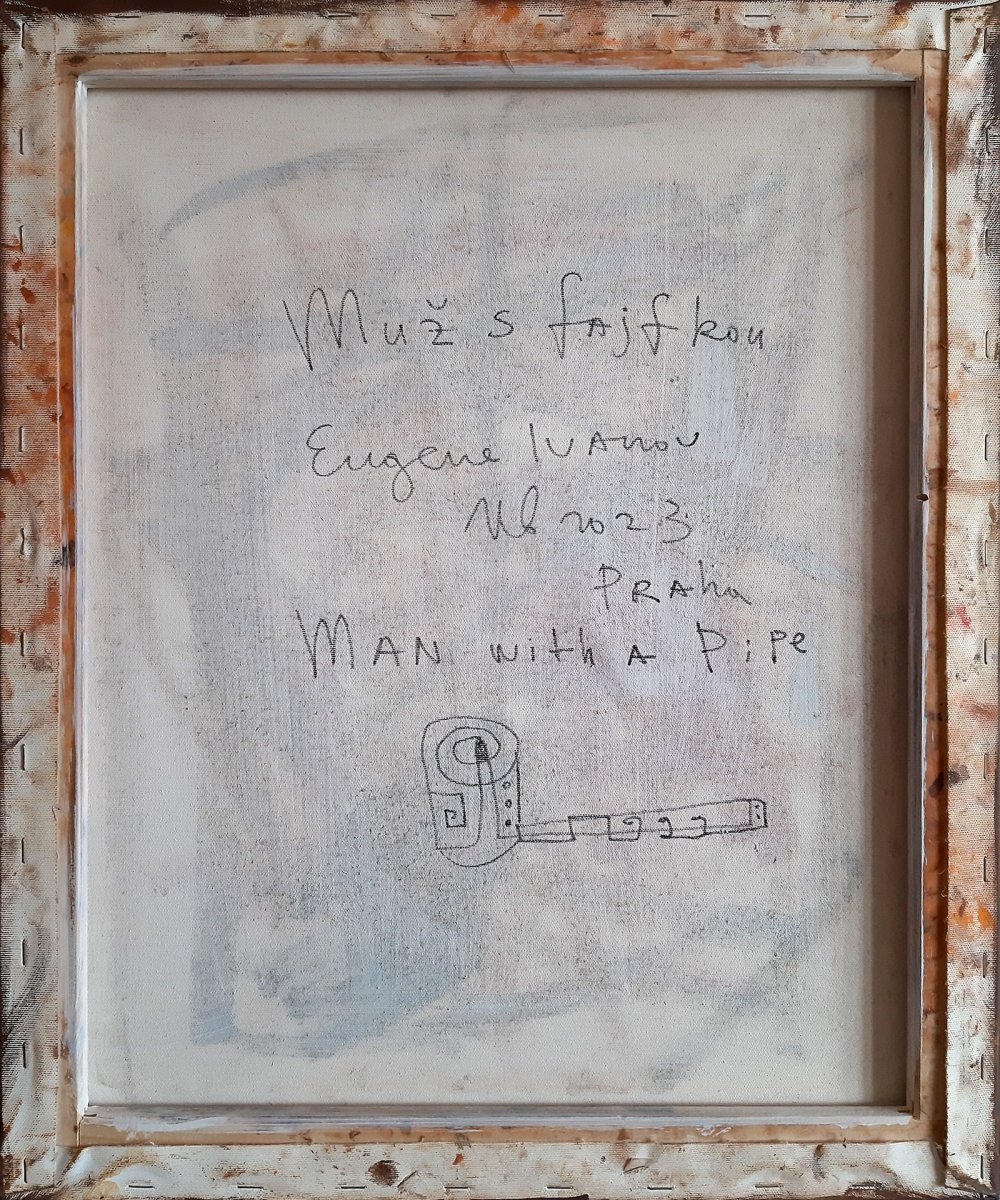 Muž s fajfkou
Eugene Ivanov
2023
Praha
Man with a Pipe